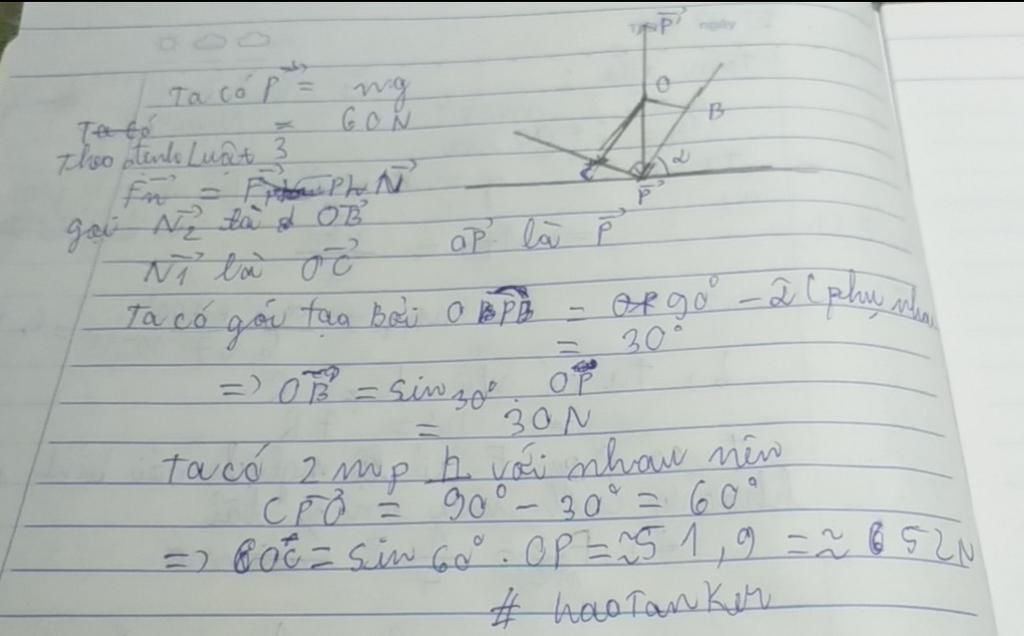 P'
ngày
O
B
C
α
P
Ta có P = mg
Ta có = 60N
Theo định Luật 3
Fn = N
gọi N2 là OB
OP là P
N1 là OC
Ta có góc tạo bởi OPB = 90° - α (phụ nhau
= 30°
=> OB = sin30° . OP
= 30N
Ta có 2 mp ⊥ với nhau nên
CPO = 90° - 30° = 60°
=> OC = sin60° . OP = ≈51,9 = ≈ 52N
# haoTanker